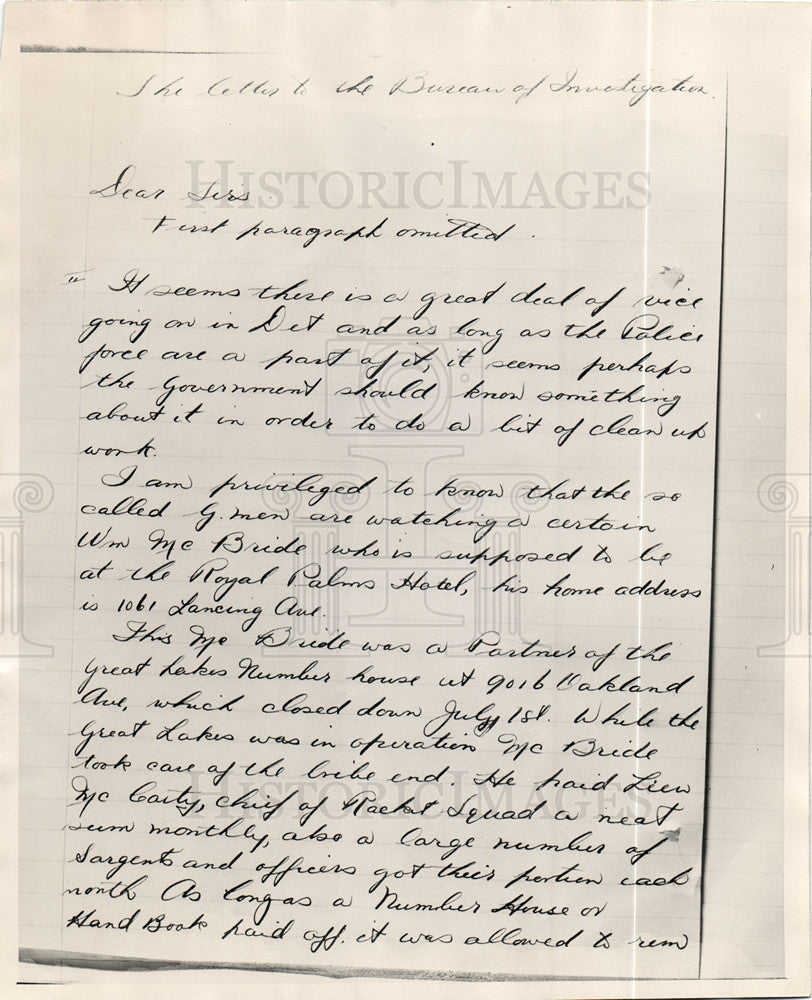 The letter to the Bureau of Investigation.
Dear Sirs.
First paragraph omitted.
" It seems there is a great deal of vice
going on in Det and as long as the Police
force are a part of it, it seems perhaps
the Government should know something
about it in order to do a bit of clean up
work.
I am privileged to know that the so
called G. men are watching a certain
Wm Mc Bride who is supposed to be
at the Royal Palms Hotel, his home address
is 1061 Lancing Ave.
This Mc Bride was a Partner of the
Great Lakes Number house at 9016 Oakland
Ave, which closed down July 1st. While the
Great Lakes was in operation Mc Bride
took care of the bribe end. He paid Lieu
Mc Carty, chief of Racket Squad a neat
sum monthly, also a large number of
Sargents and officers got their portion each
month As long as a Number House or
Hand Book paid off, it was allowed to rem
HISTORICIMAGES
HISTORICIMAGES